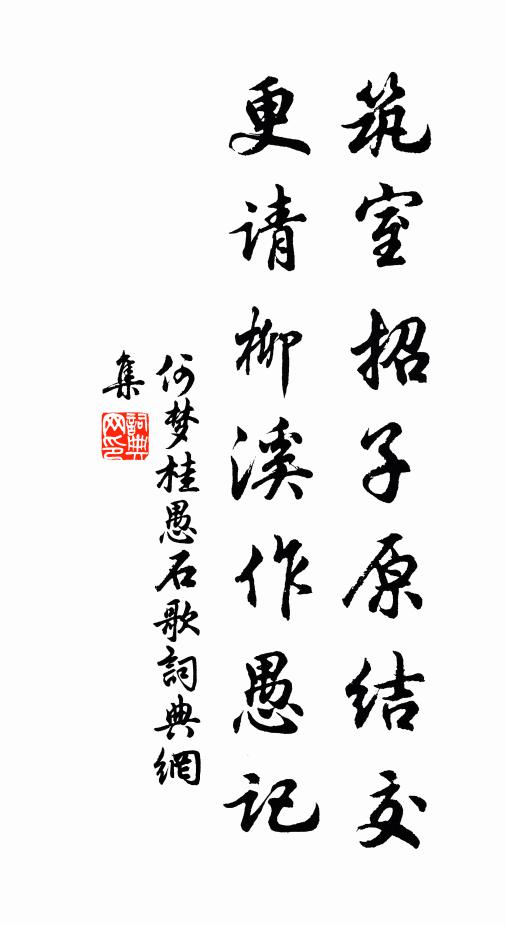 筑室招子原结交
更请柳溪作愚记
何梦桂愚石歌詞典網
集
詞典网印